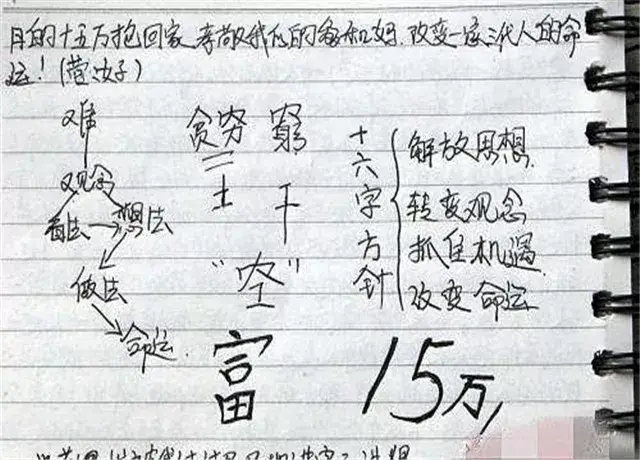 目的十五万抱回家、孝敬我们的爸和妈.改变一家三代人的命
运！(营凶子)
难
观念
看法 想法
做法
命运.
贫穷 窮
三 土 干
"空"
富
十六字方针
解放思想.
转变观念
抓住机遇.
改变命运.
15万,